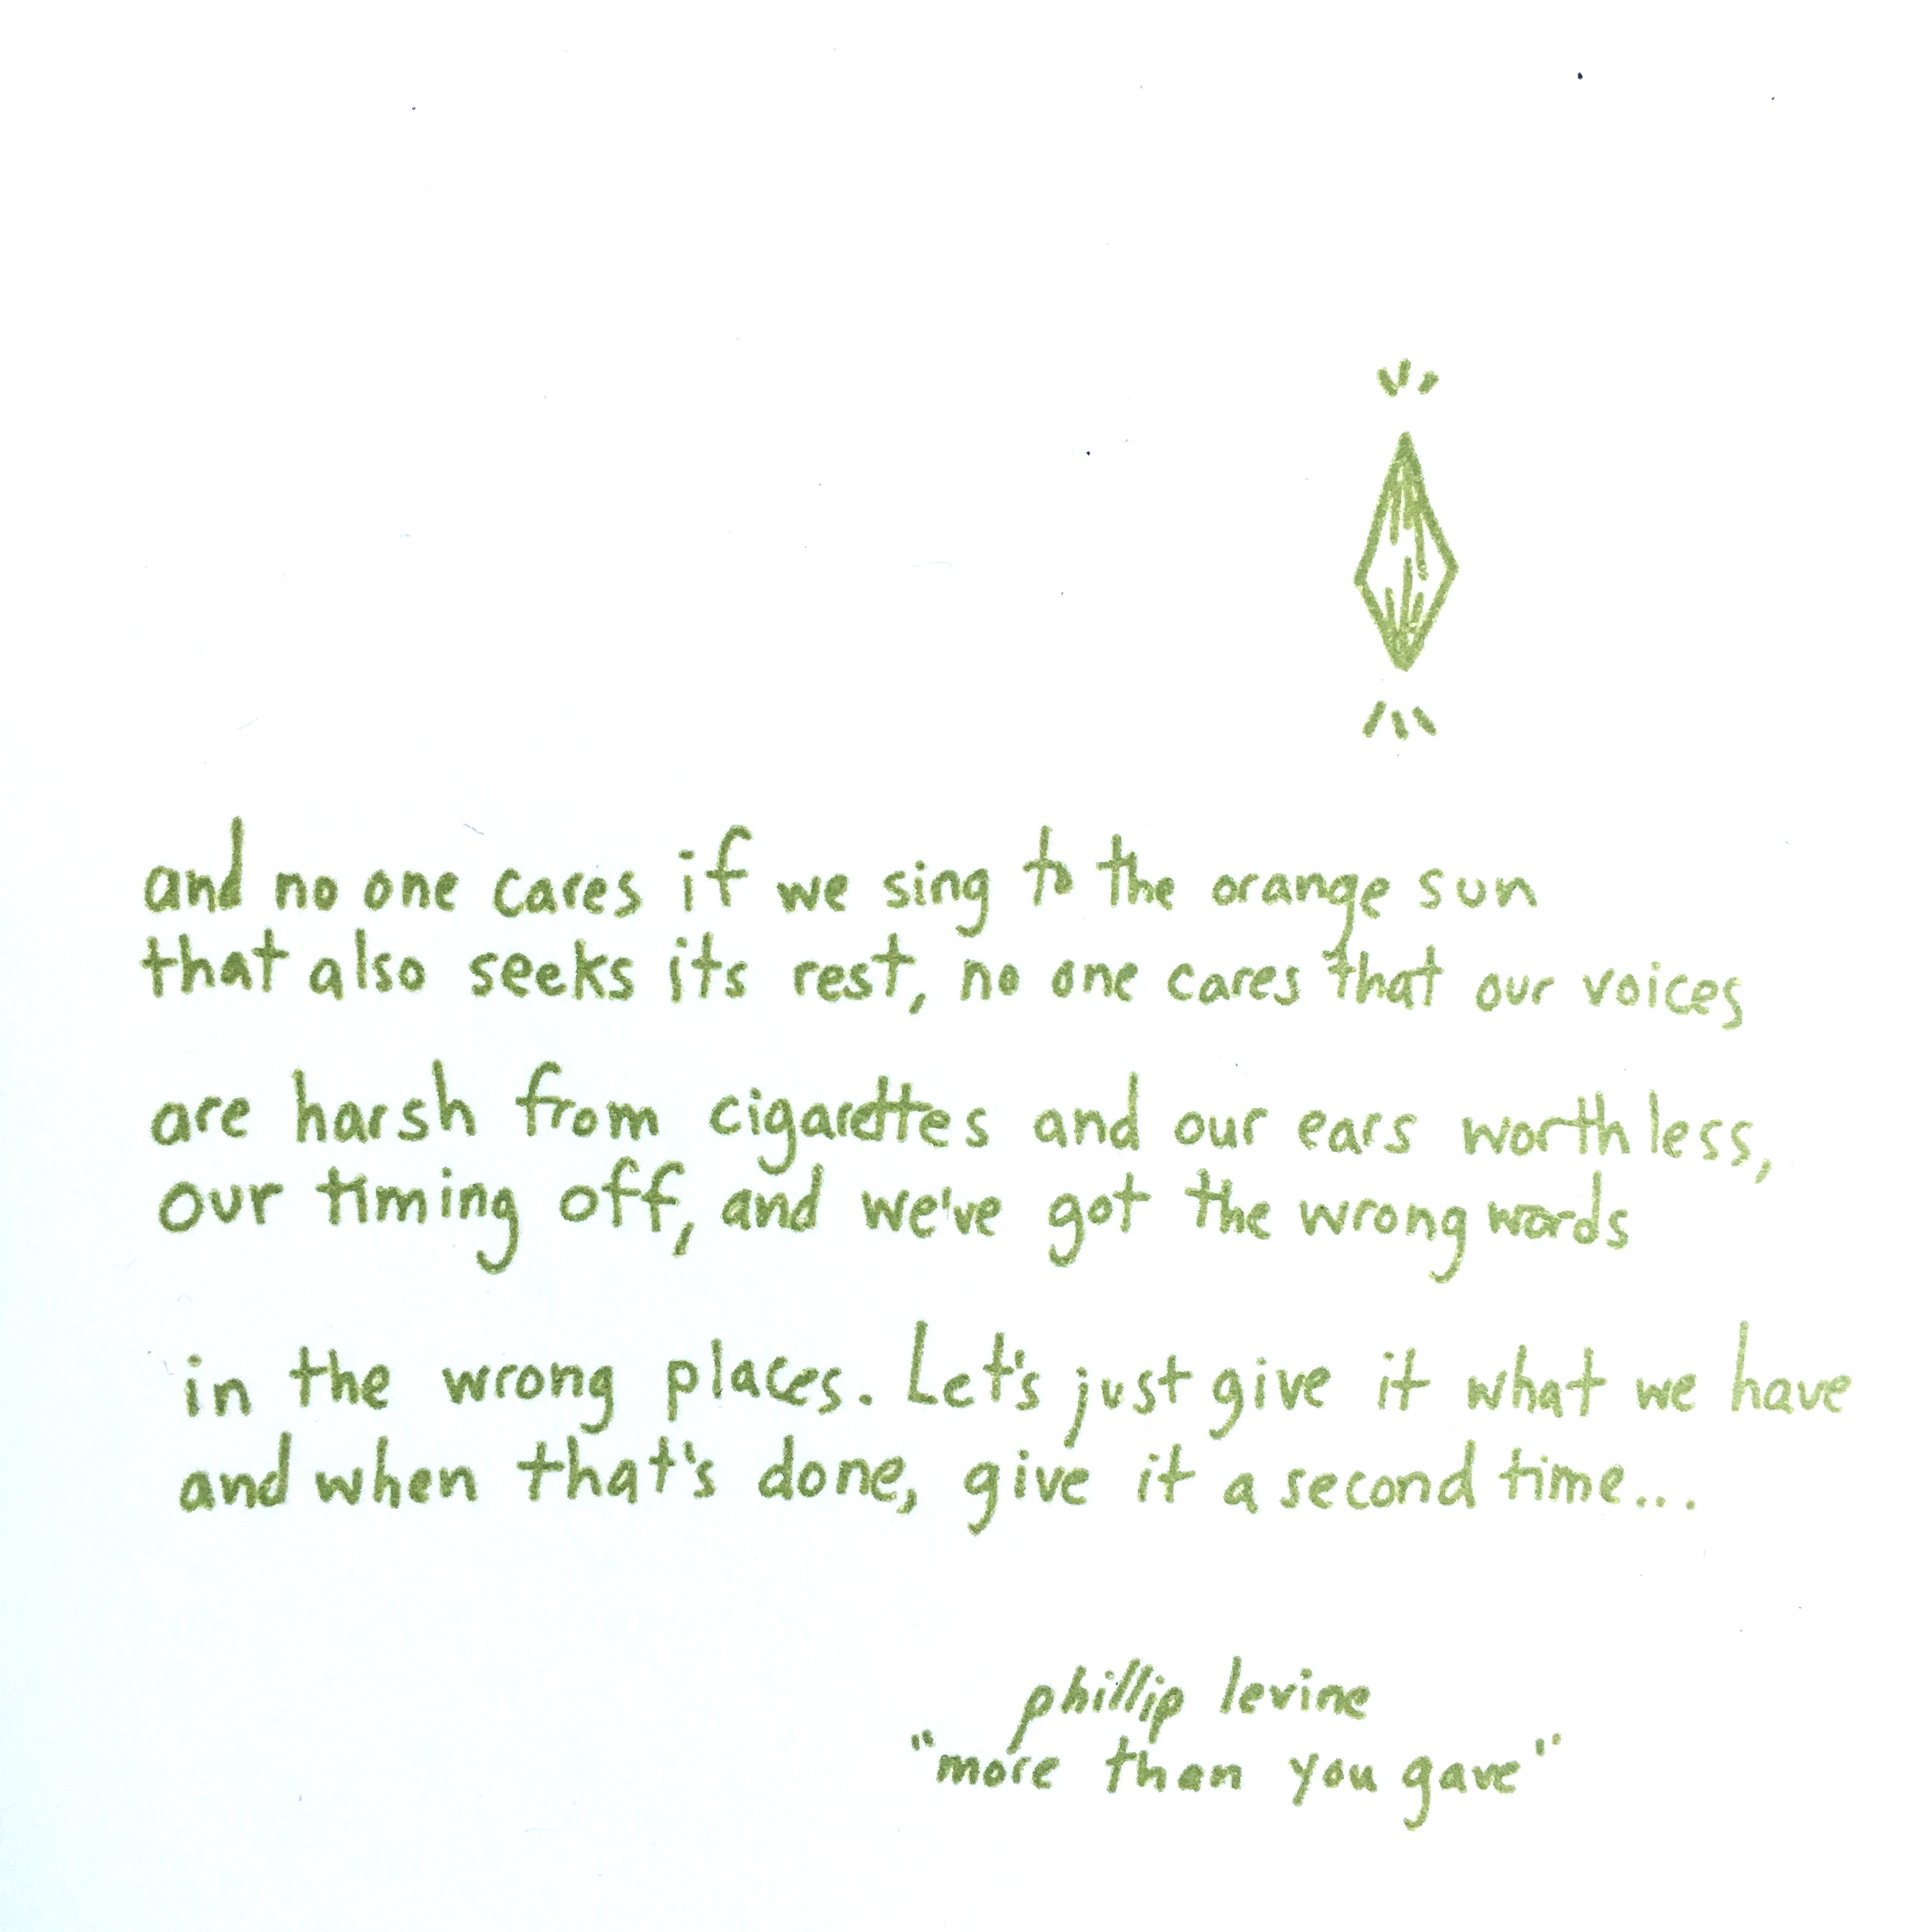 and no one cares if we sing to the orange sun
that also seeks its rest, no one cares that our voices
are harsh from cigarettes and our ears worthless,
our timing off, and we've got the wrong words
in the wrong places. Let's just give it what we have
and when that's done, give it a second time...
phillip levine
"more than you gave"